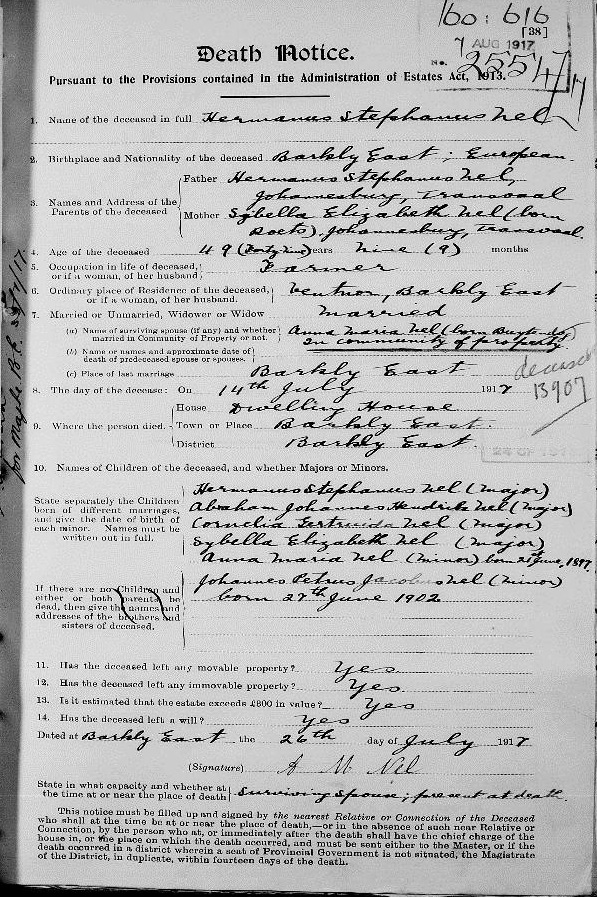 160 : 616
[38]
7 AUG 1917
Death Notice.
No. 2554/17
Pursuant to the Provisions contained in the Administration of Estates Act, 1913.
1. Name of the deceased in full Hermanus Stephanus Nel
2. Birthplace and Nationality of the deceased Barkly East ; European
3. Names and Address of the Parents of the deceased
Father Hermanus Stephanus Nel,
Johannesburg, Transvaal
Mother Sybella Elizabeth Nel (born
), Johannesburg, Transvaal.
4. Age of the deceased 49 (Forty nine) years nine (9) months
5. Occupation in life of deceased, or if a woman, of her husband Farmer
6. Ordinary place of Residence of the deceased, or if a woman, of her husband. Ventnor, Barkly East
7. Married or Unmarried, Widower or Widow Married
(a) Name of surviving spouse (if any) and whether married in Community of Property or not. Anna Maria Nel (born
In community of property
(b) Name or names and approximate date of death of predeceased spouse or spouses.
deceased
13907
(c) Place of last marriage Barkly East
8. The day of the decease : On 14th July 1917
9. Where the person died.
House Dwelling House
Town or Place Barkly East.
District Barkly East.
10. Names of Children of the deceased, and whether Majors or Minors.
State separately the Children born of different marriages, and give the date of birth of each minor. Names must be written out in full.
Hermanus Stephanus Nel (major)
Abraham Johannes Hendrik Nel (major)
Cornelia Gertruida Nel (major)
Sybella Elizabeth Nel (major)
Anna Maria Nel (minor) born 21st June, 1897.
Johannes Petrus Jacobus Nel (minor)
born 27th June 1902.
If there are no Children and either or both parents be dead, then give the names and addresses of the brothers and sisters of deceased.
11. Has the deceased left any movable property? Yes
12. Has the deceased left any immovable property? Yes
13. Is it estimated that the estate exceeds £300 in value? Yes
14. Has the deceased left a will? Yes
Dated at Barkly East the 26th day of July 1917
(Signature) A M Nel
State in what capacity and whether at the time at or near the place of death Surviving Spouse ; present at death.
This notice must be filled up and signed by the nearest Relative or Connection of the Deceased
who shall at the time be at or near the place of death,—or in the absence of such near Relative or
Connection, by the person who at, or immediately after the death shall have the chief charge of the
house in, or the place on which the death occurred, and must be sent either to the Master, or if the
death occurred in a district wherein a seat of Provincial Government is not situated, the Magistrate
of the District, in duplicate, within fourteen days of the death.